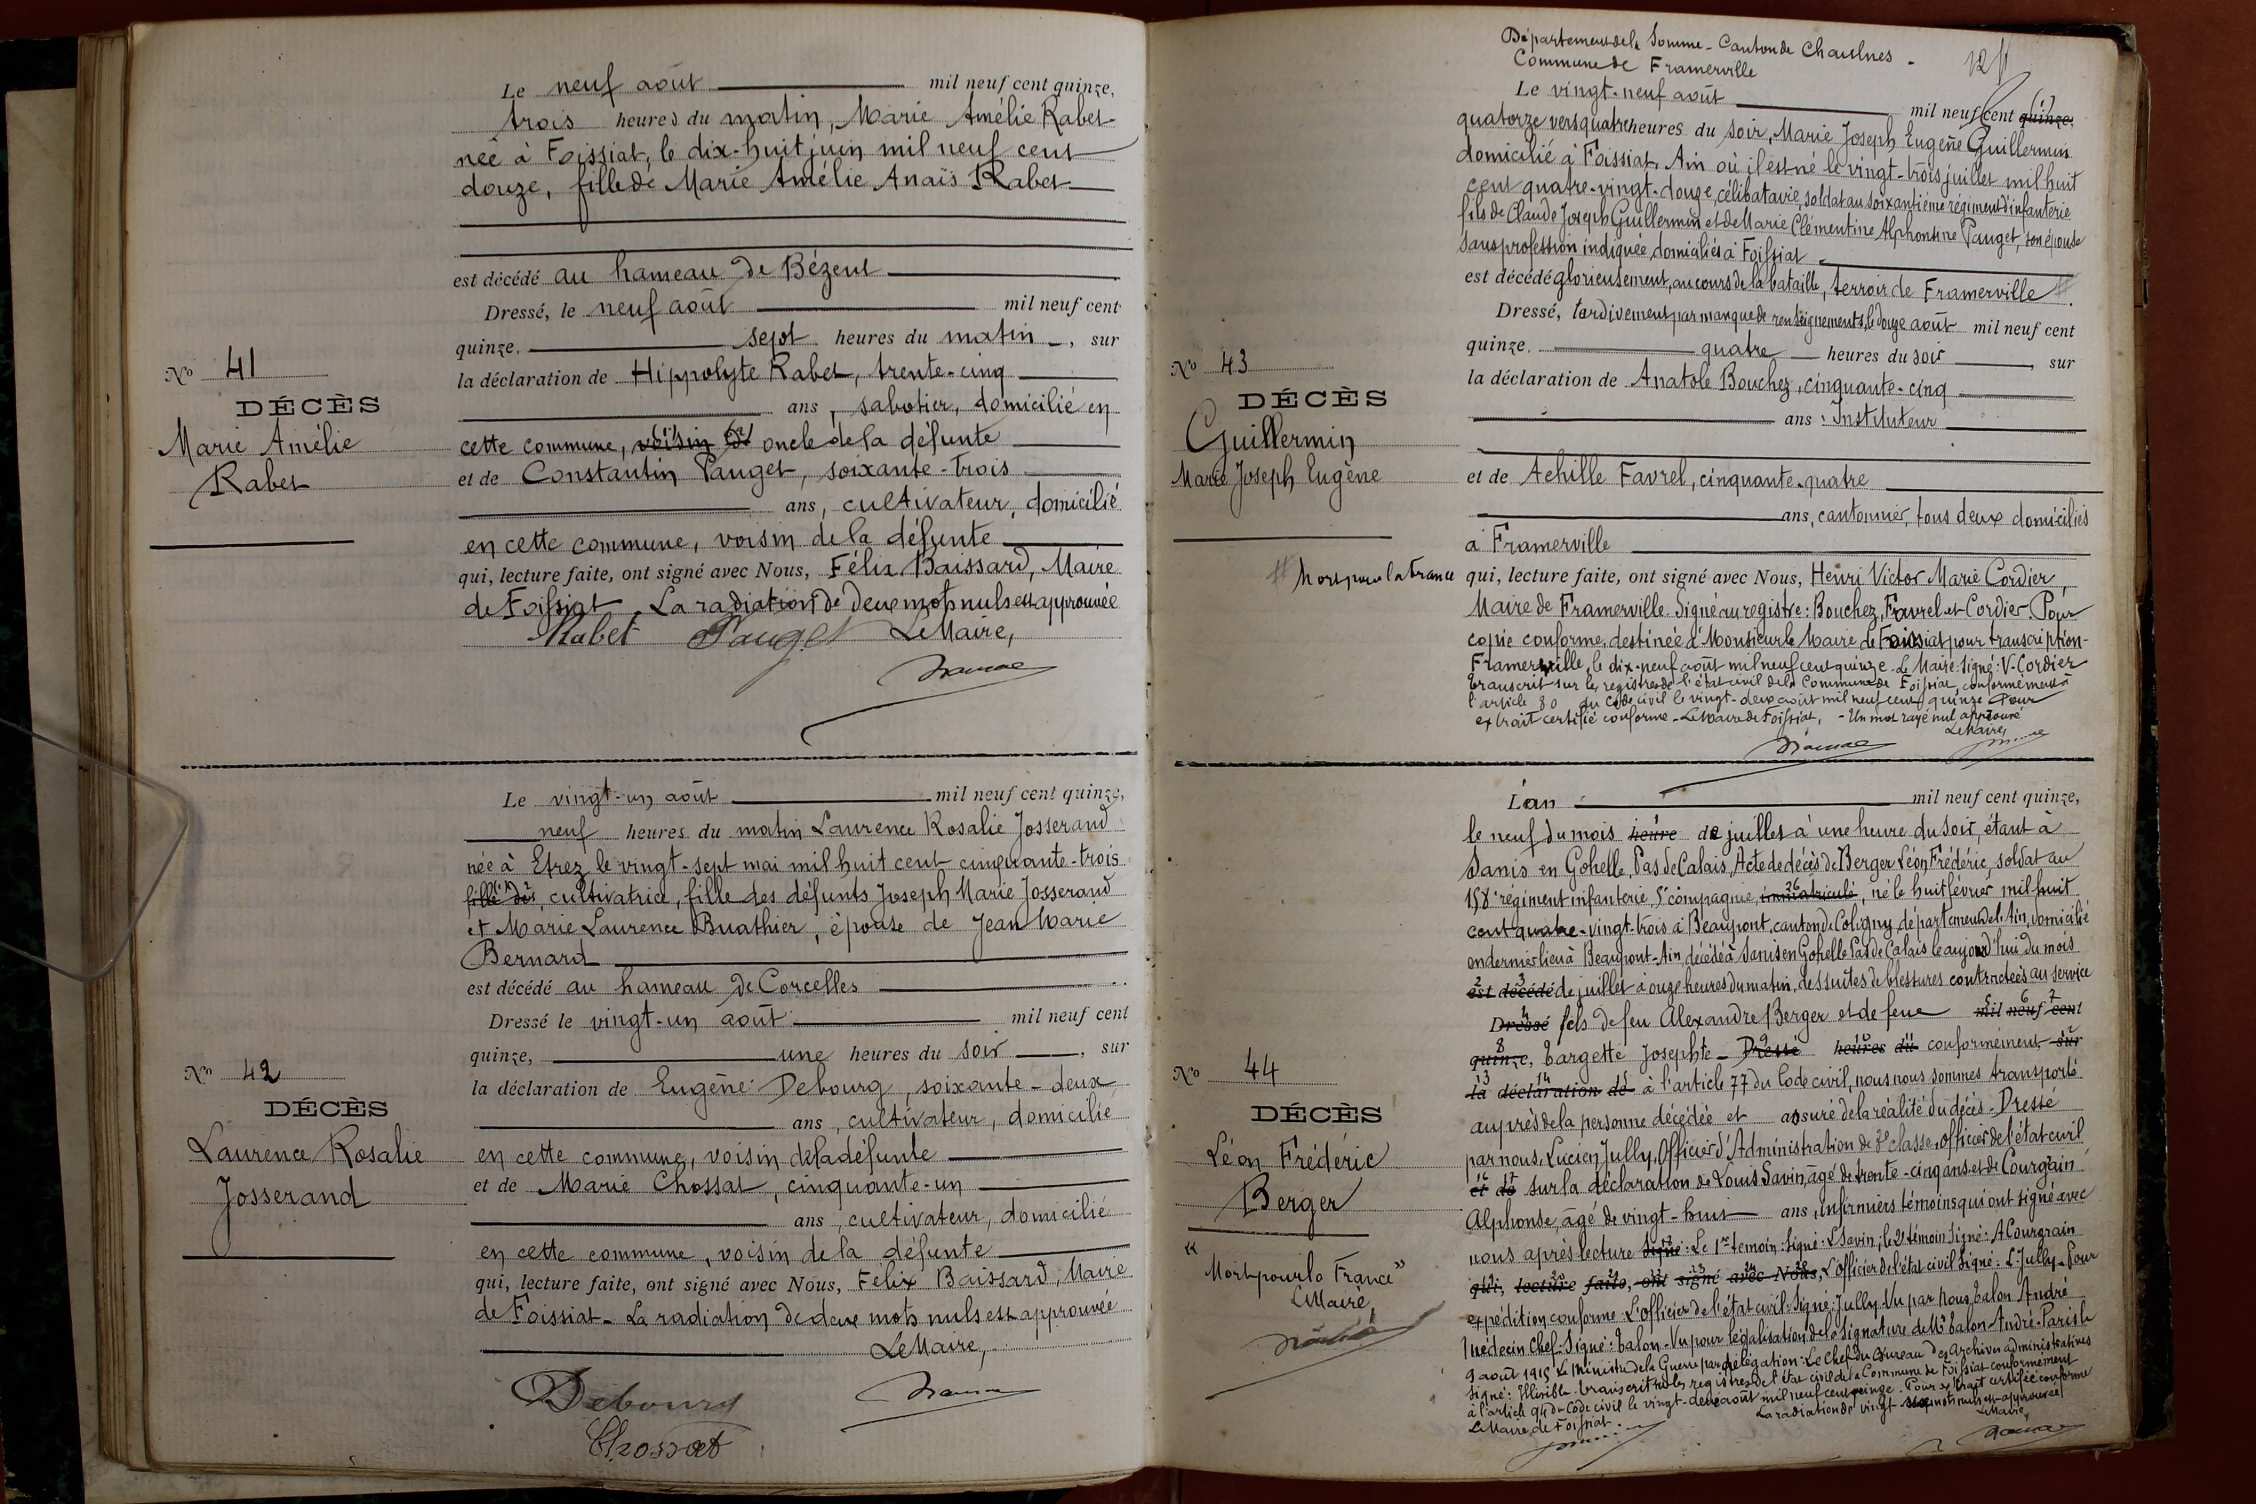 Le neuf août mil neuf cent quinze,
trois heures du matin, Marie Amélie Rabet
née à Foissiat, le dix-huit juin mil neuf cent
douze, fille de Marie Amélie Anaïs Rabet
est décédé au hameau de Bézent
Dressé, le neuf août mil neuf cent
quinze. sept heures du matin, sur
la déclaration de Hippolyte Rabet, trente-cinq
ans, sabotier, domicilié en
cette commune, voisin de oncle de la défunte
et de Constantin Pauget, soixante-trois
ans, cultivateur, domicilié
en cette commune, voisin de la défunte
qui, lecture faite, ont signé avec Nous, Félix Baissard, Maire
de Foissiat. La radiation de deux mots nuls est approuvée
Rabet Pauget Le Maire,
No 41
DÉCÈS
Marie Amélie
Rabet
Le vingt-un août mil neuf cent quinze,
neuf heures du matin Laurence Rosalie Josserand
née à Etrez le vingt-sept mai mil huit cent cinquante-trois
fille de, cultivatrice, fille des défunts Joseph Marie Josserand
et Marie Laurence Buathier, épouse de Jean Marie
Bernard
est décédé au hameau de Corcelles
Dressé le vingt-un août mil neuf cent
quinze, une heures du soir, sur
la déclaration de Eugène Debourg, soixante-deux
ans, cultivateur, domicilié
en cette commune, voisin de la défunte
et de Marie Chossat, cinquante-un
ans, cultivateur, domicilié
en cette commune, voisin de la défunte
qui, lecture faite, ont signé avec Nous, Félix Baissard, Maire
de Foissiat - La radiation de deux mots nuls est approuvée
Le Maire,
Debourg
Chossat
No 42
DÉCÈS
Laurence Rosalie
Josserand
Département de la Somme - Canton de Chaulnes -
Commune de Framerville
Le vingt-neuf août mil neuf cent quinze,
quatorze vers quatre heures du soir, Marie Joseph Eugène Guillermin
domicilié à Foissiat, Ain où il est né le vingt-trois juillet mil huit
cent quatre-vingt-douze, célibataire, soldat au soixantième régiment d'infanterie
fils de Claude Joseph Guillermin et de Marie Clémentine Alphonsine Pauget, son épouse
sans profession indiquée, domiciliés à Foissiat
est décédé glorieusement, au cours de la bataille, terroir de Framerville #.
Dressé, tardivement par manque de renseignements, le douze août mil neuf cent
quinze. quatre heures du soir, sur
la déclaration de Anatole Bouchez, cinquante-cinq
ans, Instituteur
et de Achille Favrel, cinquante-quatre
ans, cantonnier, tous deux domiciliés
à Framerville
qui, lecture faite, ont signé avec Nous, Henri Victor Marie Cordier,
Maire de Framerville. Signé au registre: Bouchez, Favrel et Cordier. Pour
copie conforme, destinée à Monsieur le Maire de Foissiat pour transcription -
Framerville, le dix-neuf août mil neuf cent quinze - Le Maire: Signé: V. Cordier
Transcrit sur les registres de l'état civil de la Commune de Foissiat, conformément à
l'article 80 du Code civil le vingt-deux août mil neuf cent quinze Pour
extrait certifié conforme - Le Maire de Foissiat, - Un mot rayé nul approuvé
Le Maire,
No 43
DÉCÈS
Guillermin
Marie Joseph Eugène
# Mort pour la France
L'an mil neuf cent quinze,
le neuf du mois heure de juillet à une heure du soir, étant à
Sanis en Gohelle, Pas de Calais, Acte de décès de Berger Léon Frédéric, soldat au
158e régiment infanterie, 5e compagnie, immatriculé, né le huit février mil huit
cent quatre-vingt-trois à Beaupont, canton de Coligny, département de l'Ain, domicilié
en dernier lieu à Beaupont-Ain, décédé à Sanis en Gohelle Pas de Calais le aujourd'hui du mois
est décédé de juillet à onze heures du matin, des suites de blessures contractées au service
Dressé fils de feu Alexandre Berger et de feue mil neuf cent
quinze, Targette Josephte - Dressé heures du conformément sur
la déclaration de à l'article 77 du Code civil, nous nous sommes transporté
auprès de la personne décédée et assuré de la réalité du décès - Dressé
par nous, Lucien Jully, Officier d'Administration de 3e classe, officier de l'état civil
et de sur la déclaration de Louis Savin, âgé de trente-cinq ans et de Courgrain
Alphonse, âgé de vingt-huit ans, infirmiers témoins qui ont signé avec
nous après lecture Signé: Le 1er témoin: Signé: L. Savin; le 2e témoin Signé: A. Courgrain
qui, lecture faite, ont signé avec Nous, L'officier de l'état civil Signé: L. Jully - Pour
expédition conforme - L'officier de l'état civil: Signé: Jully. Vu par nous Talon André
Médecin Chef - Signé: Talon - Vu pour légalisation de la signature de Mr Talon André - Paris le
9 août 1915 Le Ministre de la Guerre par délégation: Le Chef du Bureau des Archives administratives
Signé: Illisible. Transcrit sur les registres de l'état civil de la Commune de Foissiat conformément
à l'article 94 du Code civil le vingt-deux août mil neuf cent quinze. Pour extrait certifié conforme
Le Maire de Foissiat.
Le Maire,
No 44
DÉCÈS
Léon Frédéric
Berger
"Mort pour la France"
Le Maire,